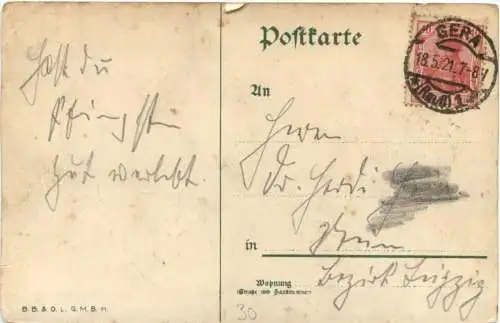 Postkarte
GERA
18.5.21. 7-8V
Hast du
Pfingsten
gut verlebt.
An
Herrn
Dr.
in
Bezirk Leipzig
Wohnung
(Straße und Hausnummer)
B.B. & O. L. G.M.B.H.
30